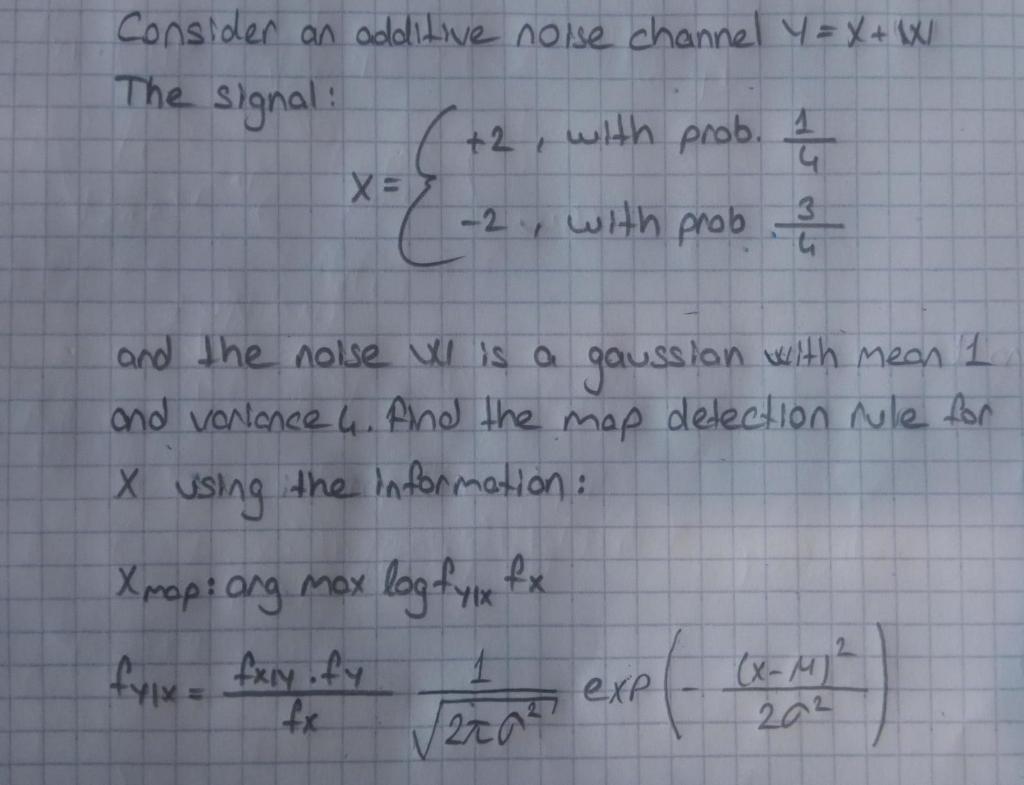 Consider an additive noise channel Y = X + W
The signal:
X = { +2, with prob. 1/4
-2, with prob. 3/4
and the noise W is a gaussian with mean 1
and variance 4. Find the map detection rule for
X using the information:
X map: arg max log f_{Y|X} f_X
f_{Y|X} = \frac{f_{X|Y} . f_Y}{f_X} \frac{1}{\sqrt{2πσ^2}} exp(-\frac{(x-μ)^2}{2σ^2})